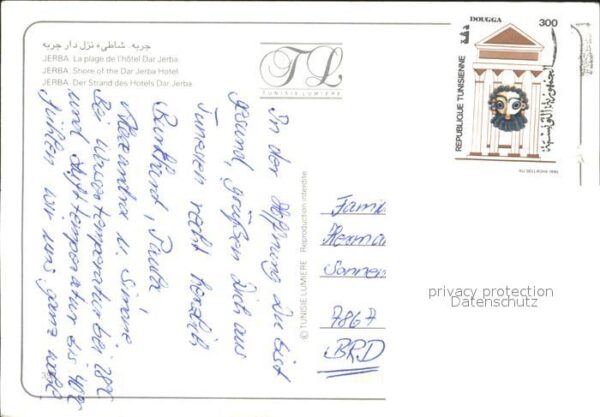 جربه - شاطىء نزل دار جربه
JERBA. La plage de l'hôtel Dar Jerba
JERBA. Shore of the Dar Jerba Hotel
JERBA. Der Strand des Hotels Dar Jerba
TL
TUNISIE LUMIERE
In der Hoffnung Du bist
gesund, grüßen Dich aus
Tunesien recht herzlich
Burkhard,
Alexandra u. Simone
Bei Wassertemperatur bei 28°C
und Lufttemperatur bis 40°C
fühlen wir uns ganz wohl.
© TUNISIE LUMIERE Reproduction interdite
DOUGGA دقة 300
REPUBLIQUE TUNISIENNE
الجمهورية التونسية
ALI BELLAGHA
Famil
Herma
Sonnen
7867
BRD
privacy protection
Datenschutz